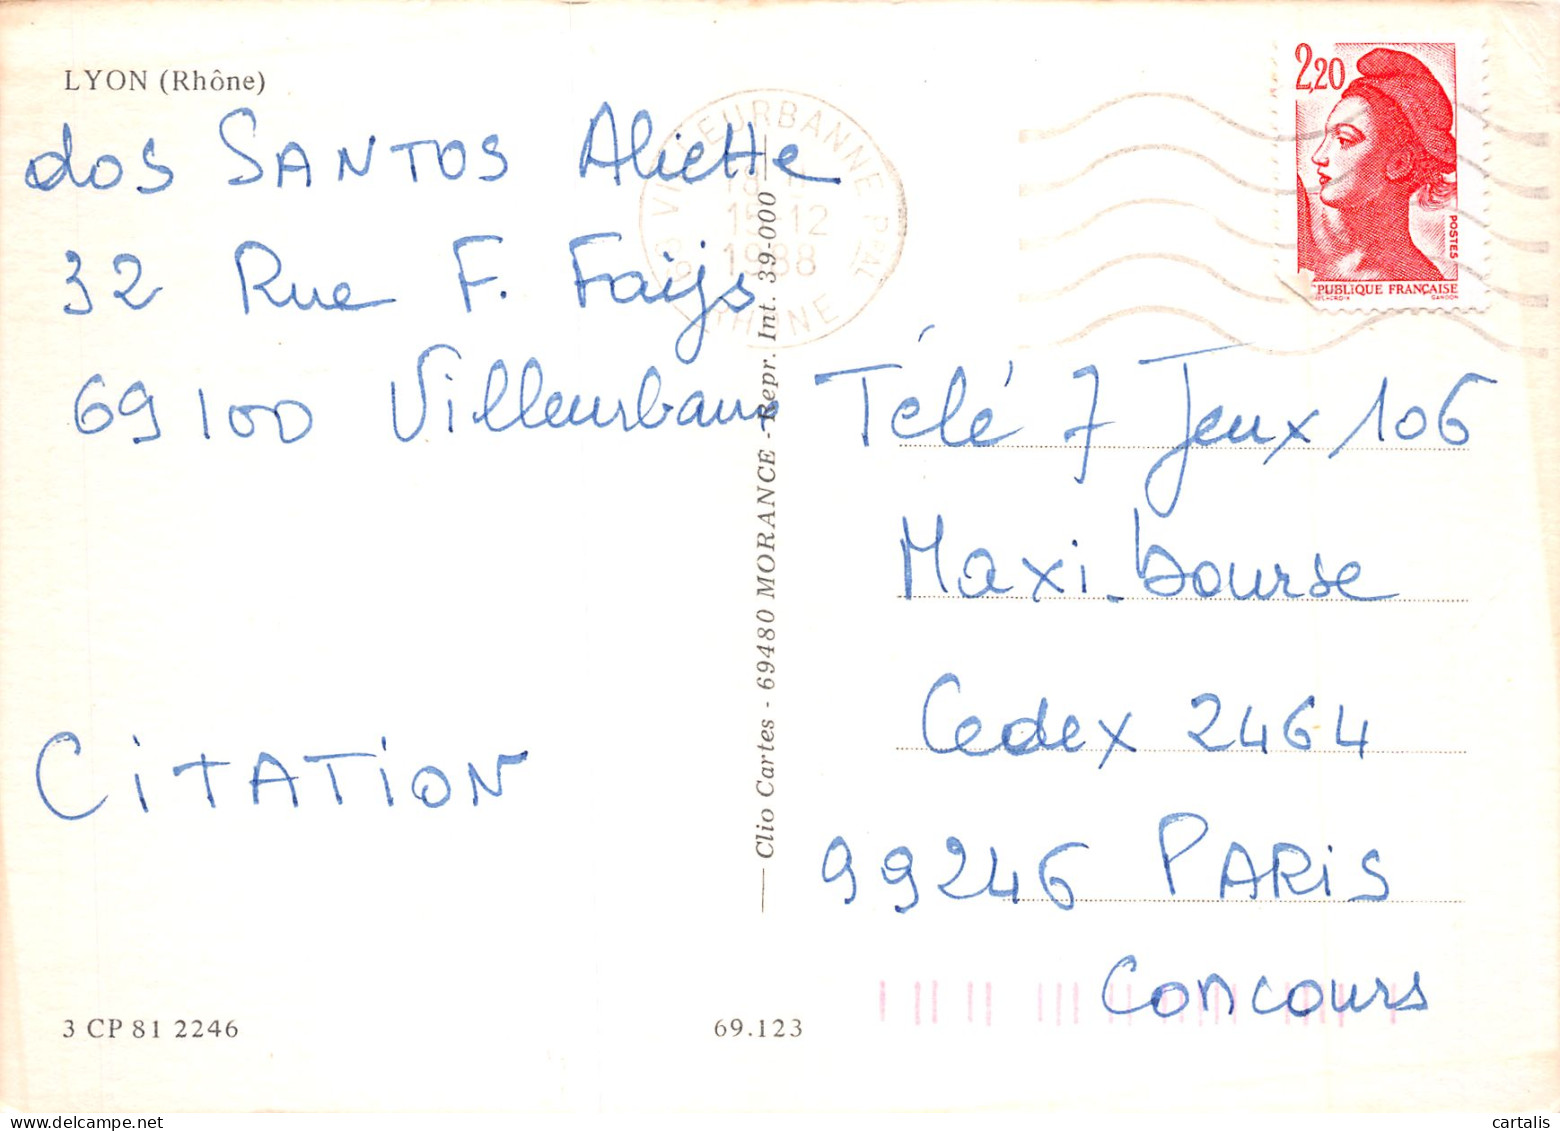 LYON (Rhône)
dos SANTOS Aliette
32 Rue F. Faijs
69100 Villeurbanne
CiTATiON
3 CP 81 2246
69.123
Clio Cartes - 69480 MORANCE - Repr. Int. 39-000
VILLEURBANNE Pᵃˡ
18 H
15-12
1988
RHÔNE
2,20
POSTES
PUBLIQUE FRANÇAISE
DELACROIX GANDON
Télé 7 Jeux 106
Maxi-bourse
Cedex 2464
99246 PARiS
Concours
cartalis